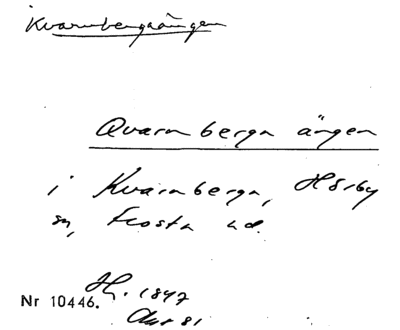 Kvarnbergaängen
Qvarnberga ängen
i Kvarnberga, Hörby
sn, Frosta hd.
Nr 10446. H. 1847
Akt 81